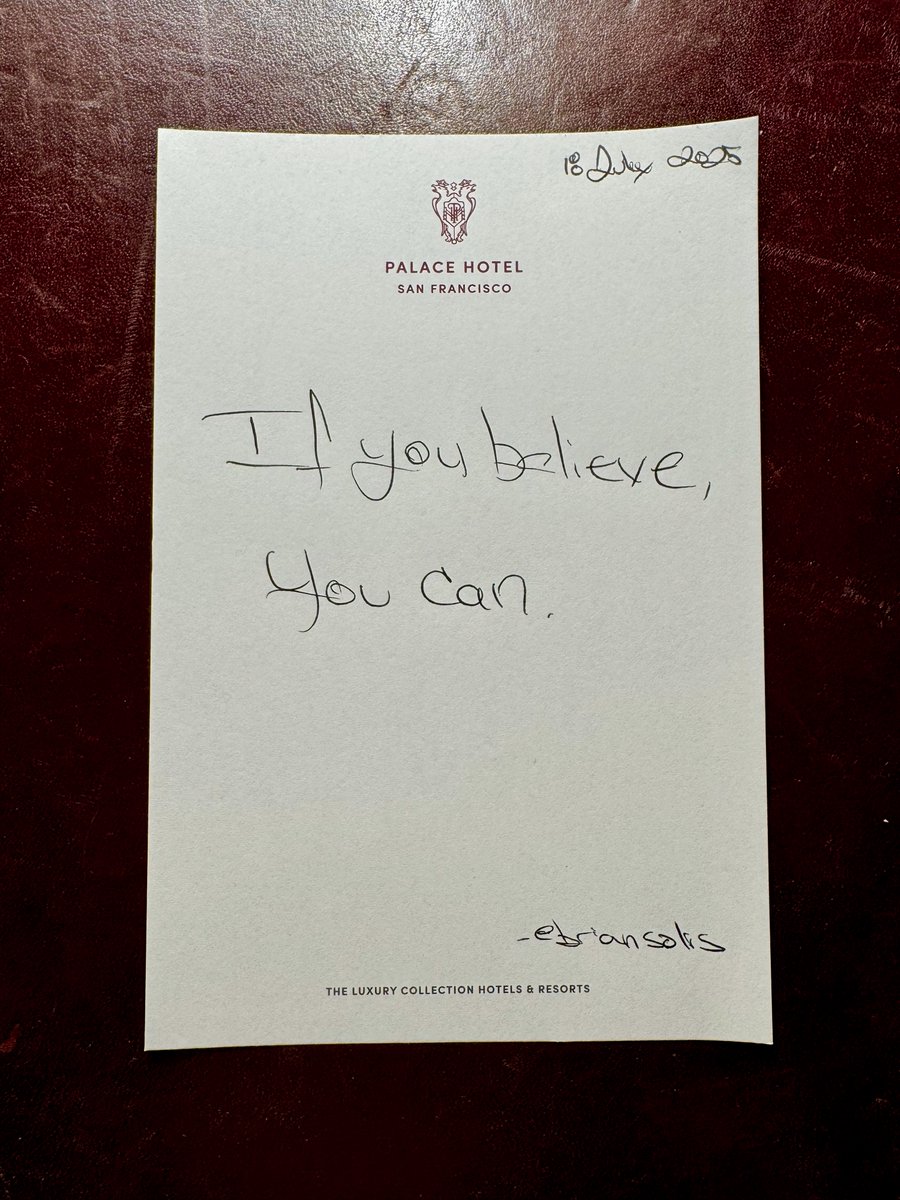 18 July 2025
PALACE HOTEL
SAN FRANCISCO
If you believe,
you can.
-@briansolis
THE LUXURY COLLECTION HOTELS & RESORTS